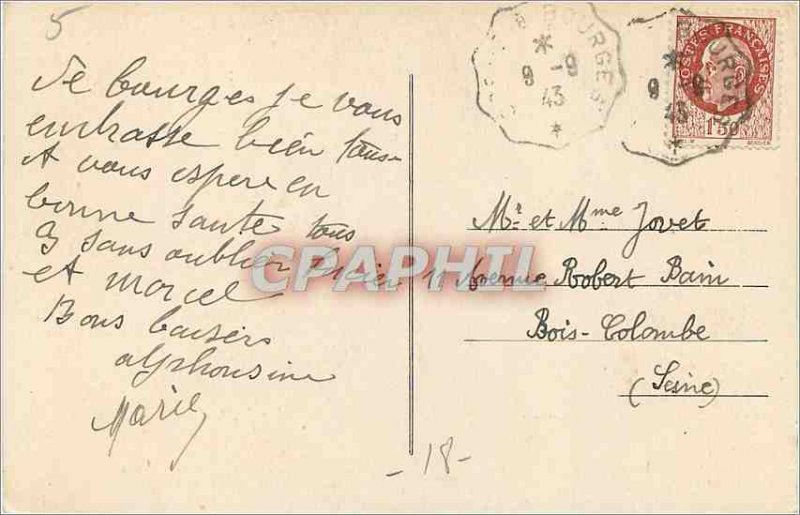 5
De bourges je vous
embrasse bien tous
et vous espere en
bonne sante tous
3 sans oublier
et marcel
Bons baisers
alphonsine
Marie
BOURGES
9 - 9
43
BOURGES
9 9
43
POSTES FRANÇAISES
1F50
Mr et Mme Jovet
10 Avenue Robert Bain
Bois-Colombe
(Seine)
CPAPHIL
- 18 -